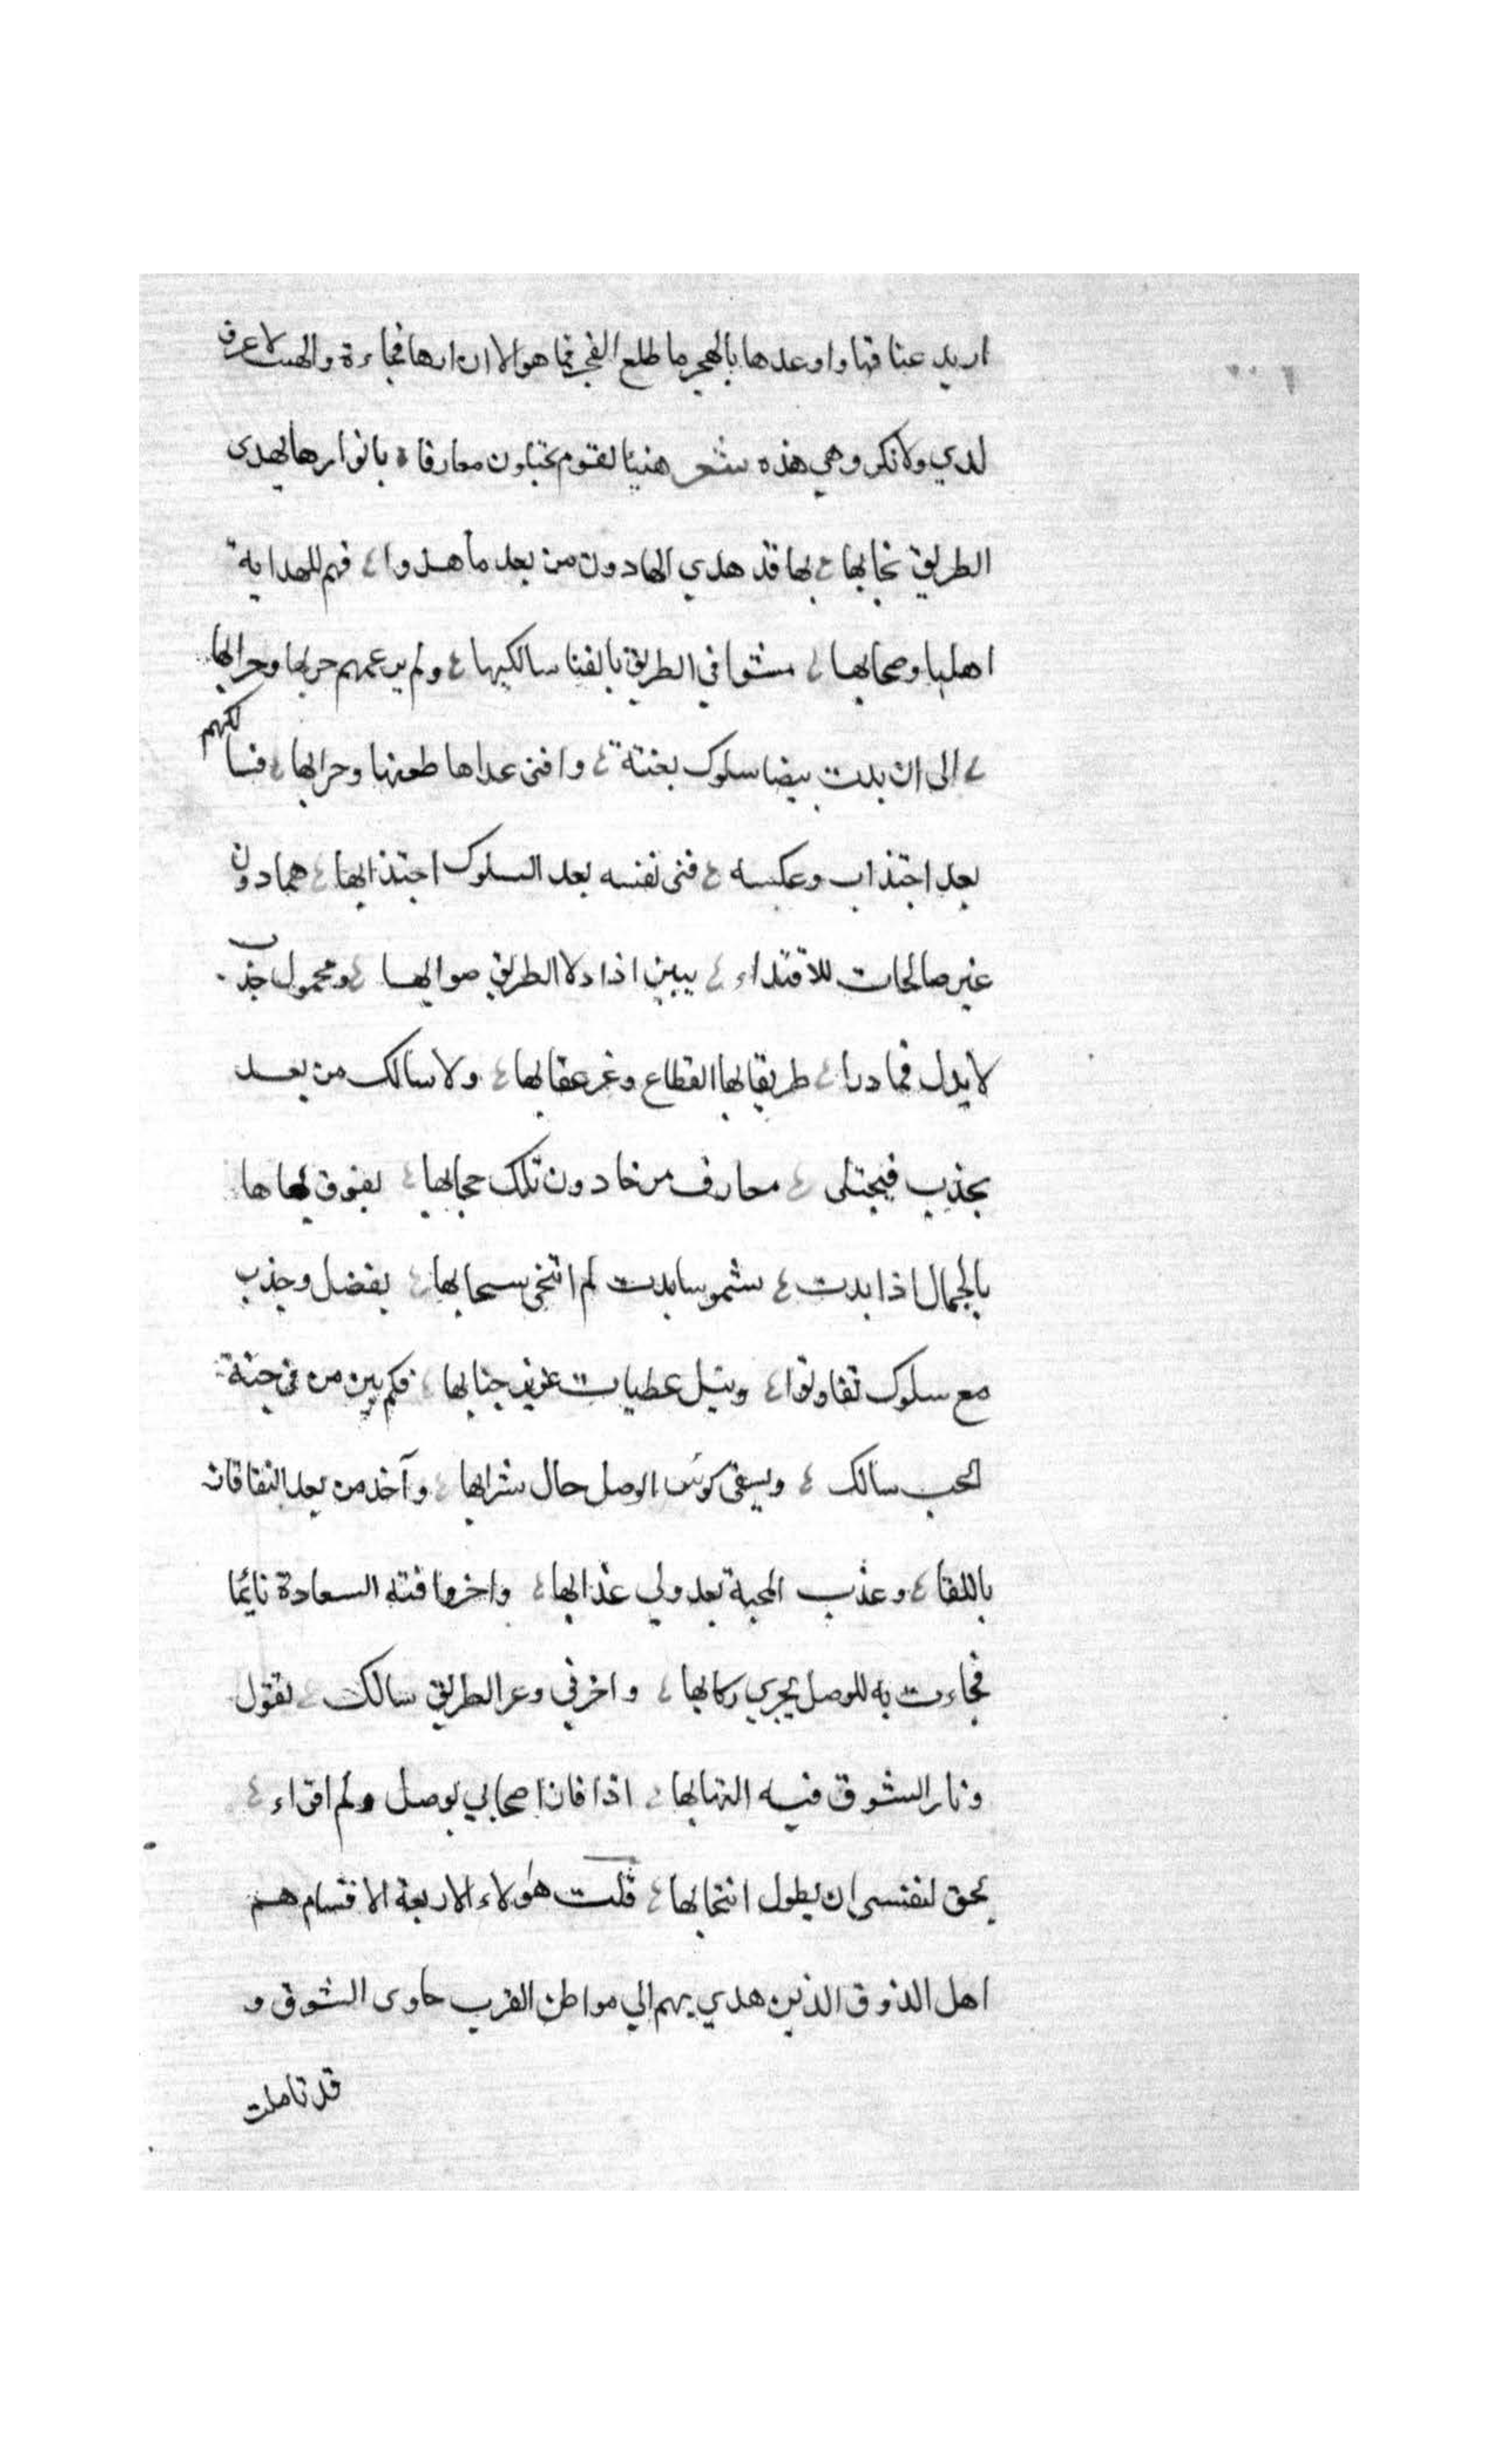 اريد عتاقها واوعدها بالهجر ما طلع الفجر فما هو الا ان اراها فجاءة والهت لا عرف
لدي ولا نكر وهي هذه شعر هنيئا لقوم يجتلون معارفا ، بانوارها يهدى
الطريق نجابها ، بها قد هدي الهادون من بعد ما هدوا ، فهم للهداية
اهلها وصحابها ، مشوا في الطريق بالفنا سالكيها ، ولم يرعهم حربها وحرابها
، الى ان بدت بيضا سلوك بغتة ، وافنى عداها طعنها وحرابها ، فسالكهم
بعد اجتذاب وعكسه ، فنى نفسه بعد السلوك اجتذابها ، همادون
غير صالحات للاقتداء ، يبين اذا دلا الطريق صوابها ، ومحمول جذب
لا يدل فما درا ، طريقا بها القطاع وغر عقابها ، ولا سالك من بعد
بجذب فيجتلى ، معارف من خا دون تلك حجابها ، يفوق بهاها
بالجمال اذا بدت ، شموسا بدت لم اتخى سحابها ، بفضل وجذب
مع سلوك تفاوتوا ، ونيل عطيات عزيز جنابها ، فكم بين من في جنة
الحب سالك ، ويسقى كوس الوصل حال شرابها ، وآخذ من بعد التفاقات
باللقا ، وعذب المحبة بعد ولي عذابها ، واخر وافته السعادة نايما
فجاءت به للوصل يجري ركابها ، واخر في وعر الطريق سالك ، يقول
ونار الشوق فيه التهابها ، اذا فان اصحابي بوصل ولم اقراء ،
يحق لنفسى ان يطول انتحابها ، قلت هولاء الاربعة الاقسام هم
اهل الذوق الذين هدي بهم الي مواطن القرب حاوى الشوق و
قد تاملت